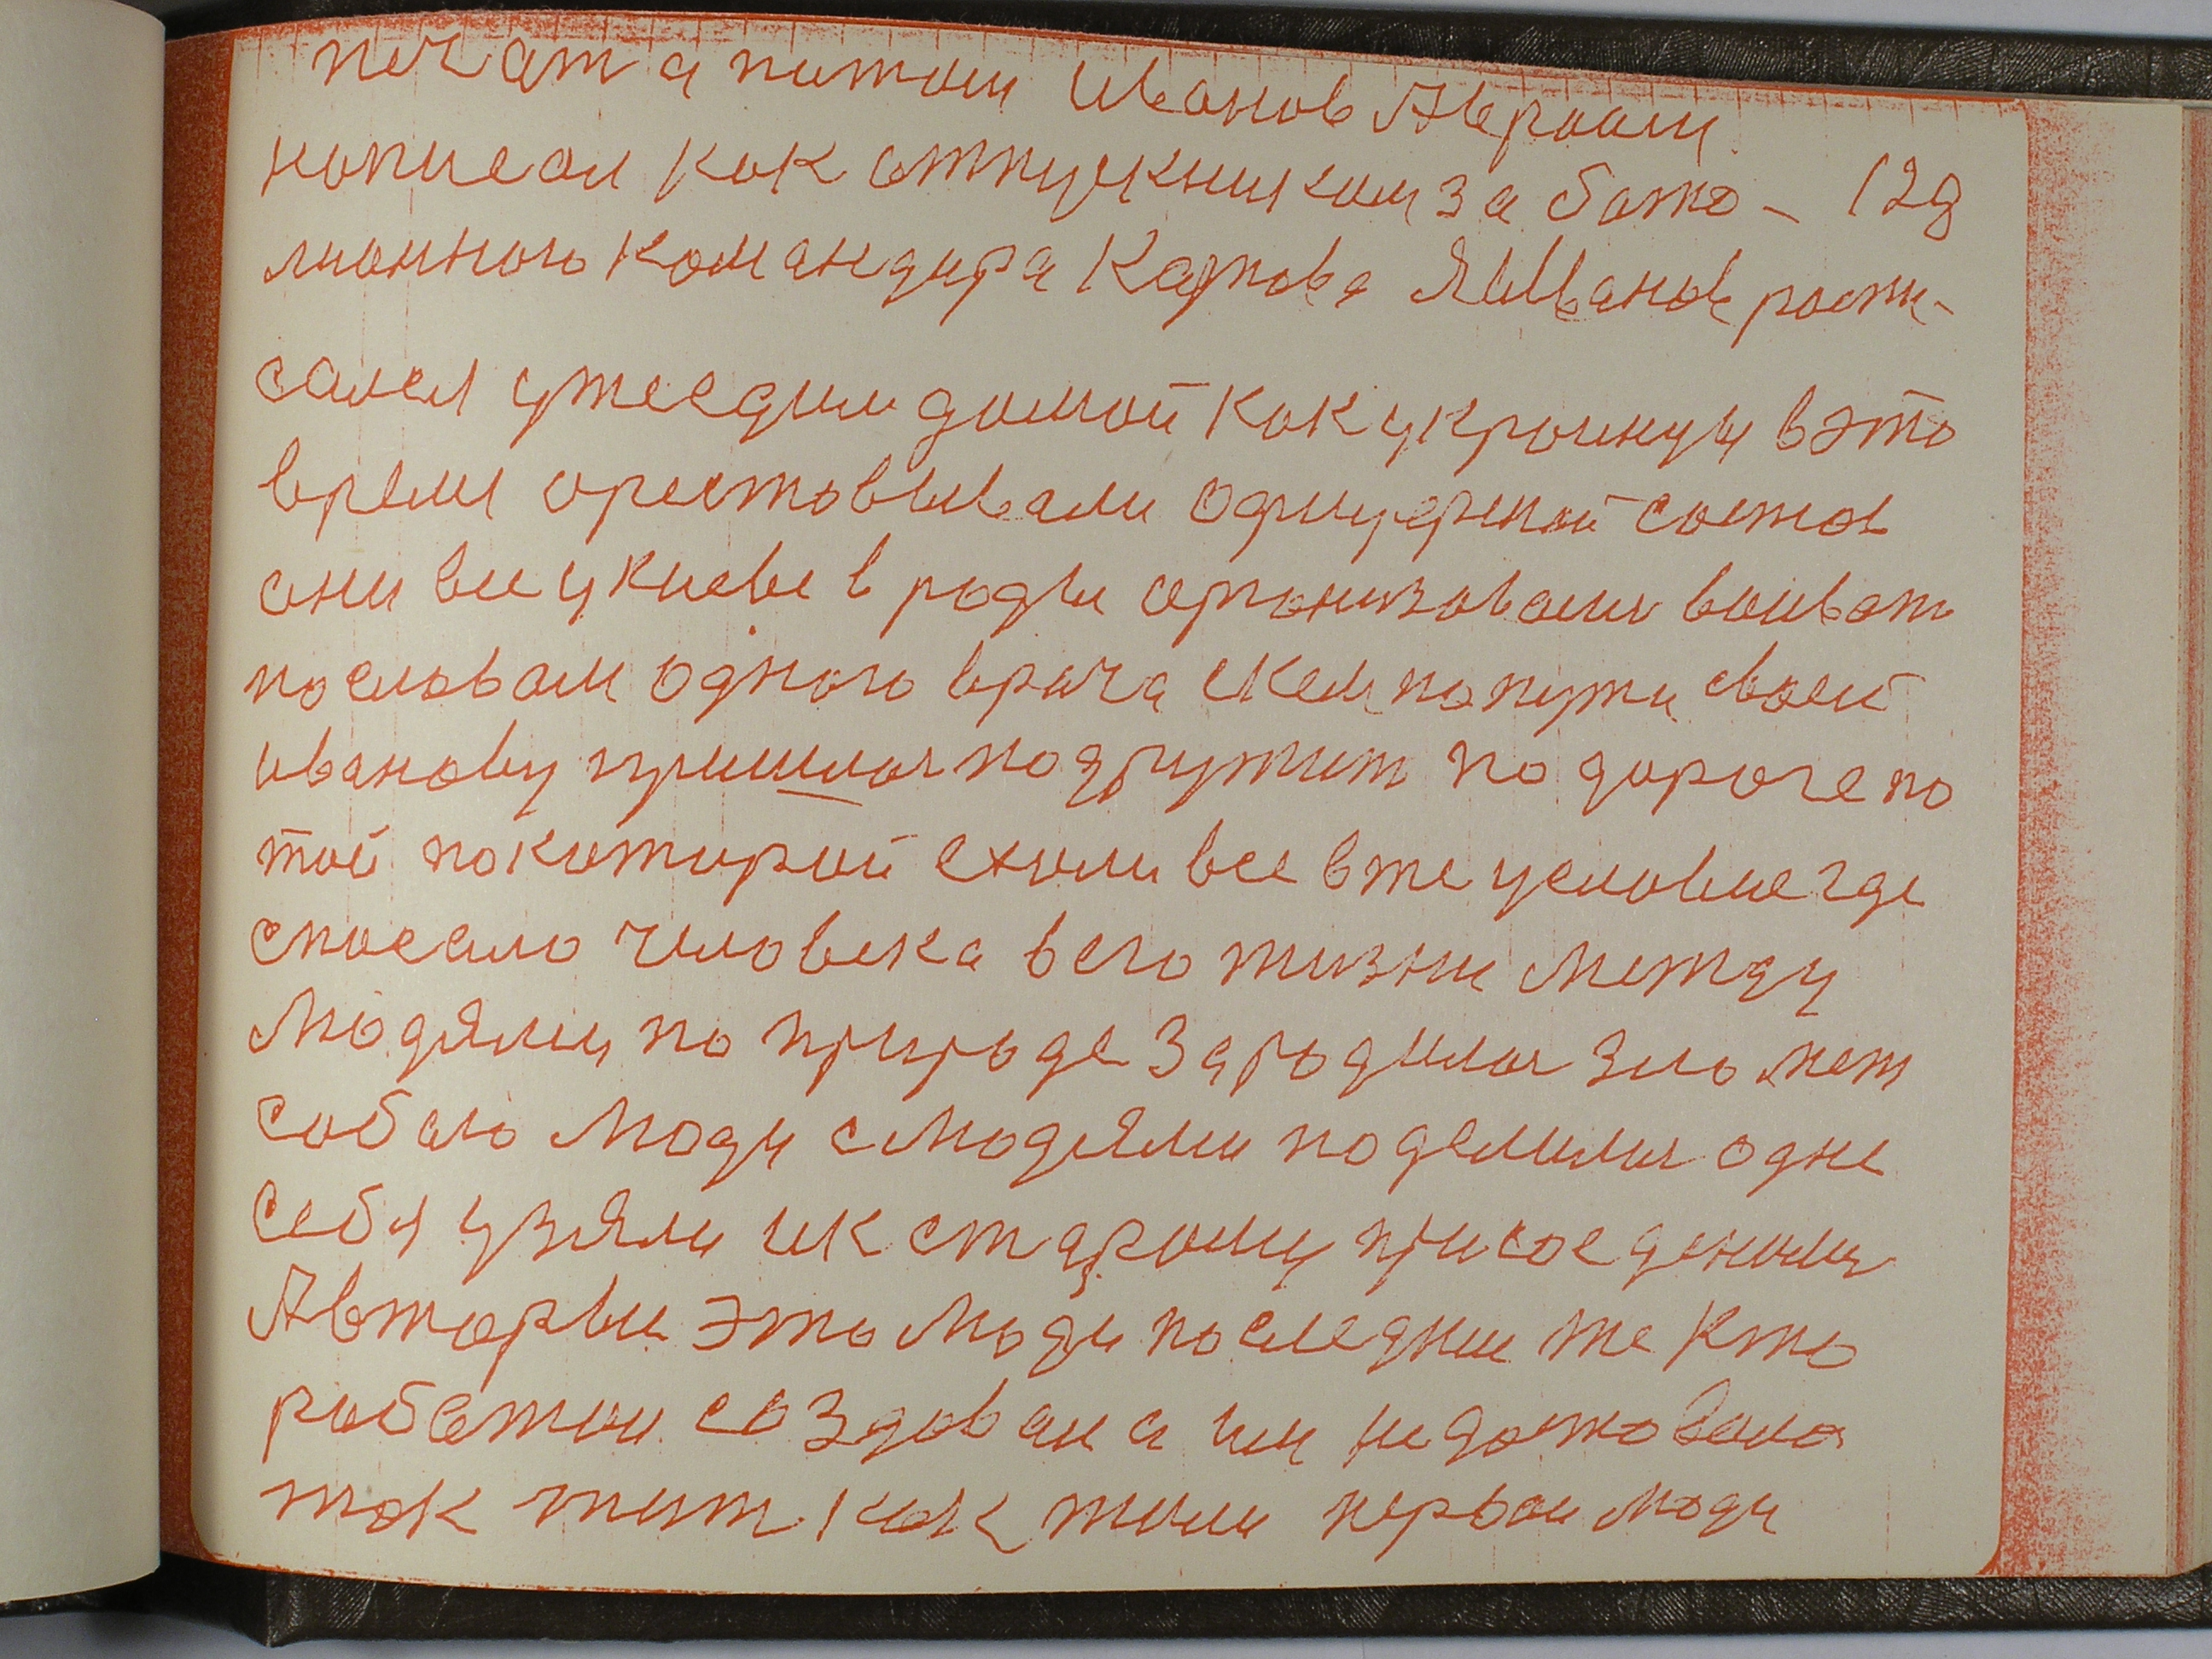 печат а потом Иванов Авраам
написал как отпускником за бата- 129
лионного командира Карпова Я Иванов распи-
сался уже едим домой как украинцы в это
время арестовывали офицерской состав
они все у Киеве в роди организовали воиват
по словам одного врача с кем по пути своей
Иванову пришлося подружит по дороге по
той по которой ехали все в те условие где
спасало человека в его жизни между
людями по природе зародилося зло меж
собаю люди с людями поделилися одне
себя узяли и к старому присоеденили
Авторы это люди последнии те кто
работои создавал а им недоставало
так жит как жили первои люди